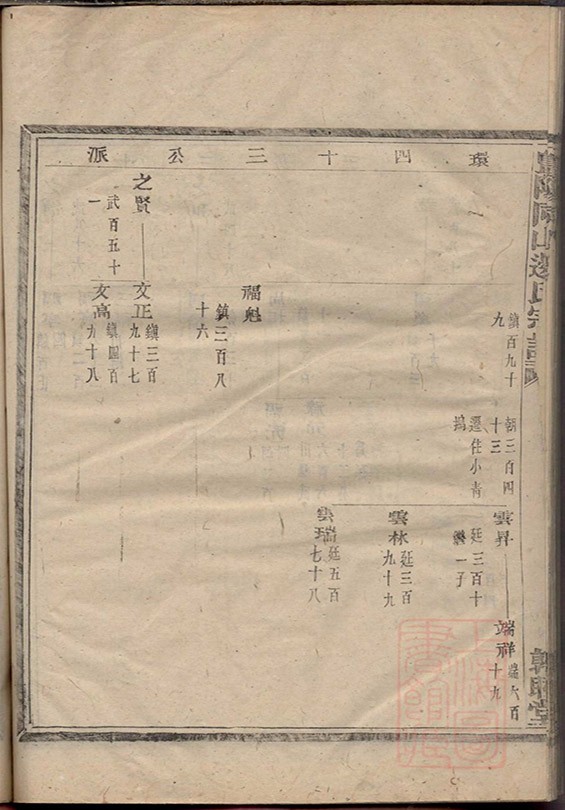 環四十三公派
鎮百九十
九
朝三百四
十三
遷住小青
塢
雲昇
廷三百十
繼一子
端祥
端六百
十九
雲林
廷三百
九十九
雲瑞
廷五百
七十八
福魁
鎮三百八
十六
之賢
武百五十
一
文正
鎮三百
九十七
文高
鎮四百
九十八